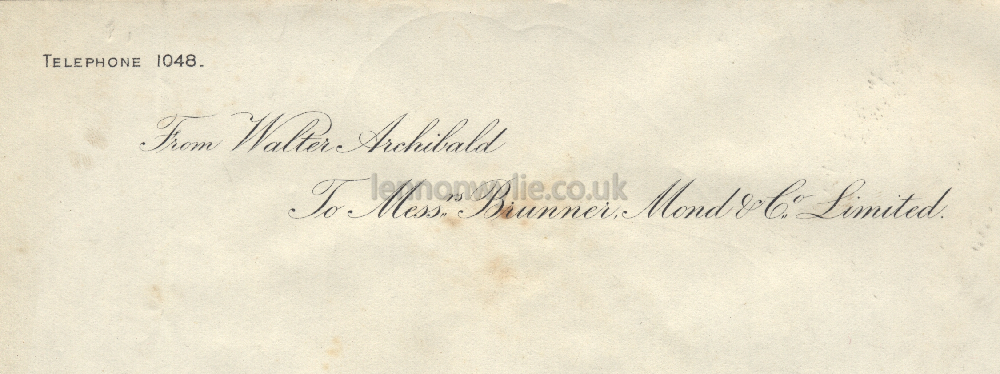 TELEPHONE 1048.
From Walter Archibald
To Messrs Brunner, Mond & Co. Limited.
lennonwylie.co.uk